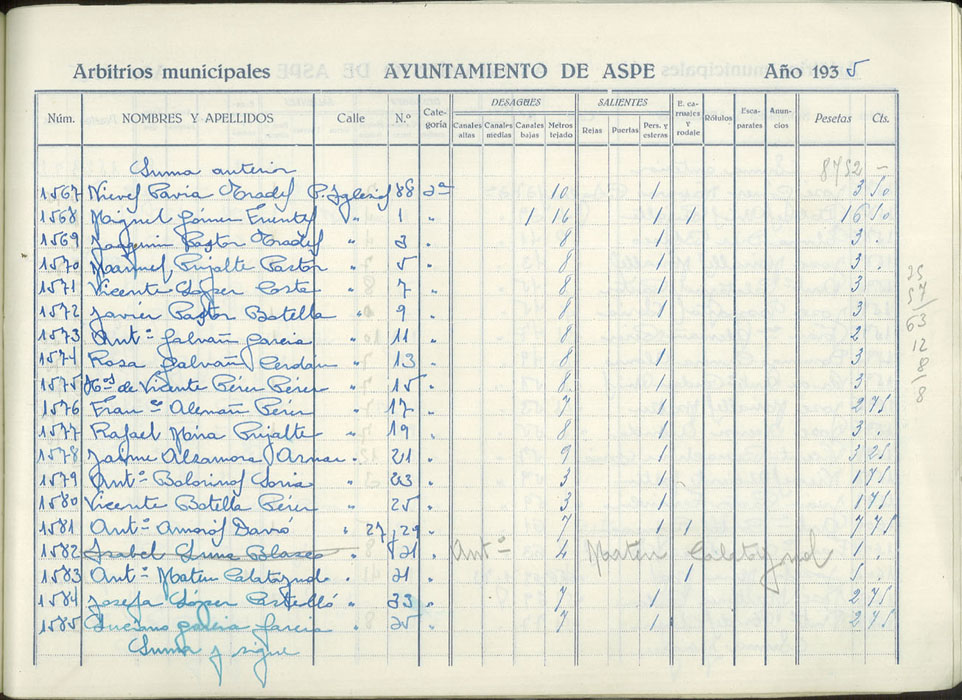 Arbitrios municipales AYUNTAMIENTO DE ASPE Año 1935
Núm. NOMBRES Y APELLIDOS Calle N.º Cate-goría DESAGUES Canales altas Canales medias Canales bajas Metros tejado SALIENTES Rejas Puertas Pers. y esteras E. ca-rruajes y rodaje Rótulos Esca-parates Anun-cios Pesetas Cts.
Suma anterior 8752 —
1567 Nieves Pavia Prades P. Iglesias 88 2ª 10 1 3 50
1568 Miguel Gómez Fuentes " 1 " 1 16 1 1 16 50
1569 Joaquin Pastor Prades " 3 " 8 1 3 "
1570 Manuel Mijalte Pastor " 5 " 8 1 3 "
1571 Vicente López Coste " 7 " 8 1 3 "
1572 Javier Pastor Botella " 9 " 8 1 3
1573 Antº Galvañ Garcia " 11 " 8 2 "
1574 Rosa Galvañ Cerdán " 13 " 8 1 3 "
1575 Hos de Vicente Pérez Pérez " 15 " 8 1 3 "
1576 Franco Alemañ Pérez " 17 " 7 1 2 75
1577 Rafael Mira Mijalte " 19 " 8 1 3 "
1578 Jaime Alzamora Aznar " 21 " 9 1 3 25
1579 Antº Bolorinos Soria " 23 " 3 1 1 75
1580 Vicente Botella Pérez " 25 " 3 1 1 75
1581 Antº Amorós Davó " 27, 29 " 7 1 1 7 75
1582 Isabel Luna Blasco " Antº 4 Mateu Calatayud 1 "
1583 Antº Mateu Calatayud " 31 " 1 5 "
1584 Josefa López Castelló " 33 " 7 1 2 75
1585 Luciano Garcia Garcia " 35 " 7 1 2 75
Suma y sigue
63
12
8
8